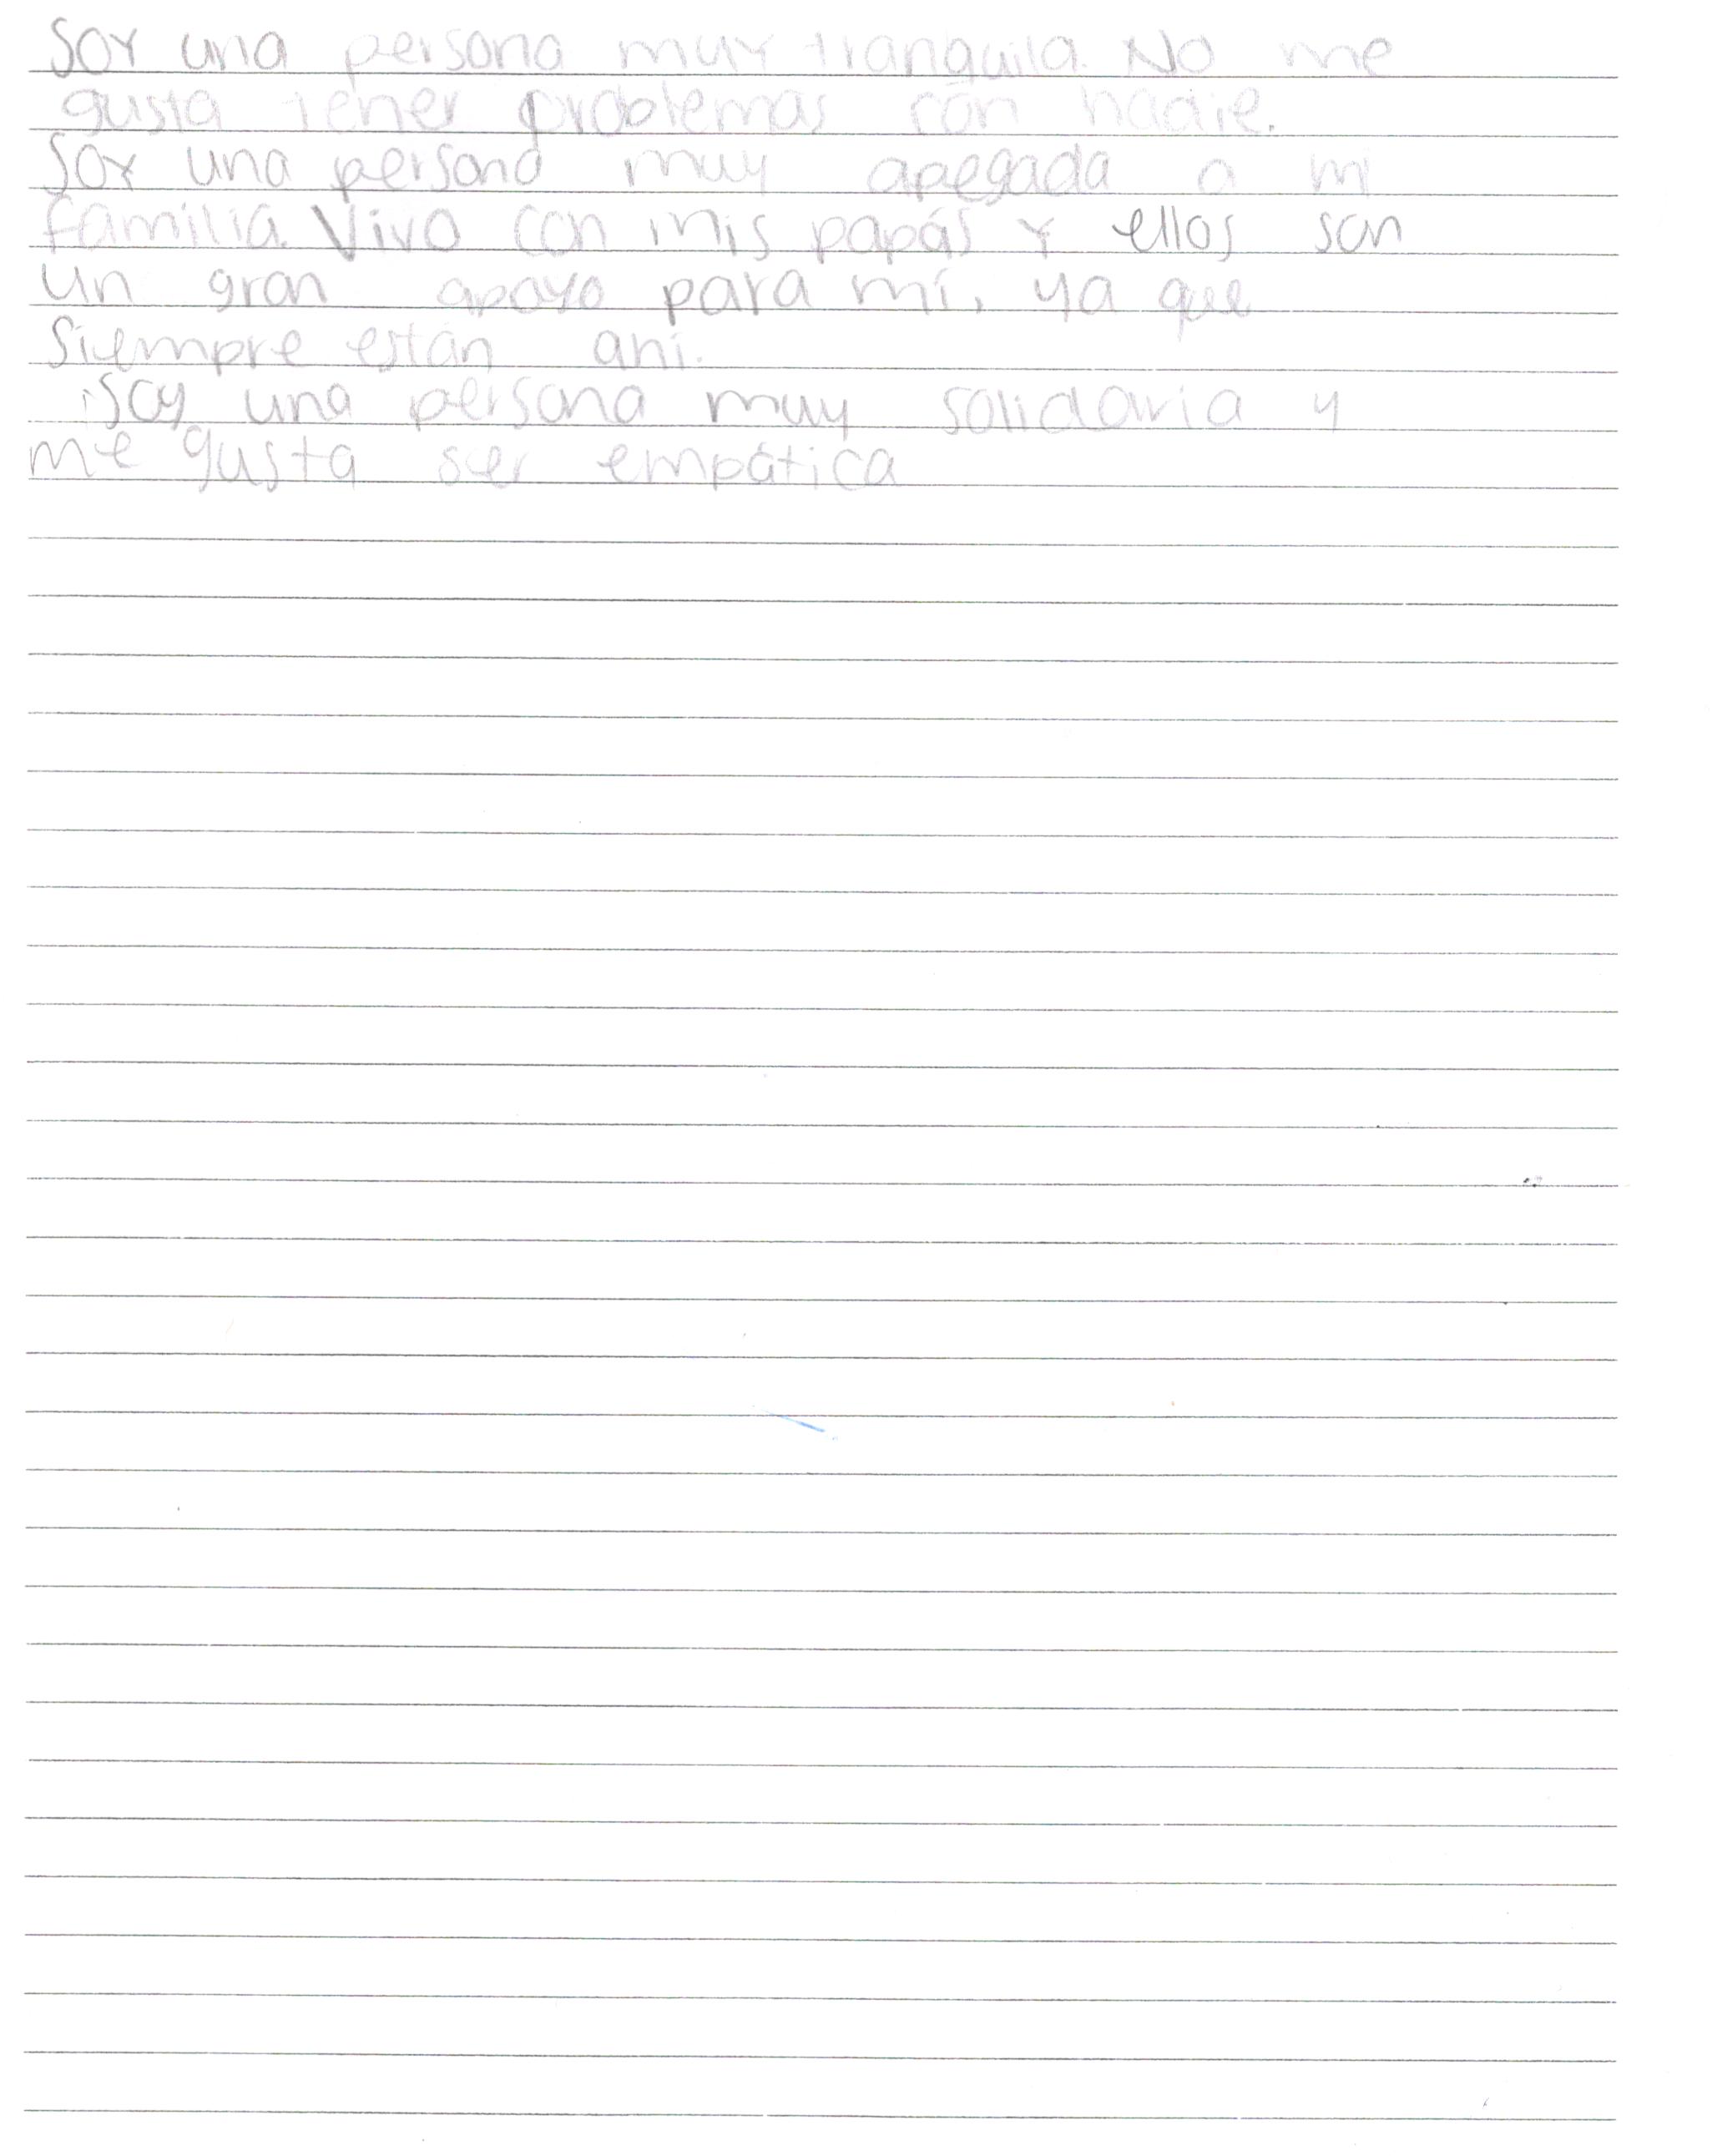 Soy una persona muy tranquila. No me
gusta tener problemas con nadie.
Soy una persona muy apegada a mi
familia. Vivo con mis papás y ellos son
un gran apoyo para mí, ya que
siempre están ahí.
Soy una persona muy solidaria y
me gusta ser empática